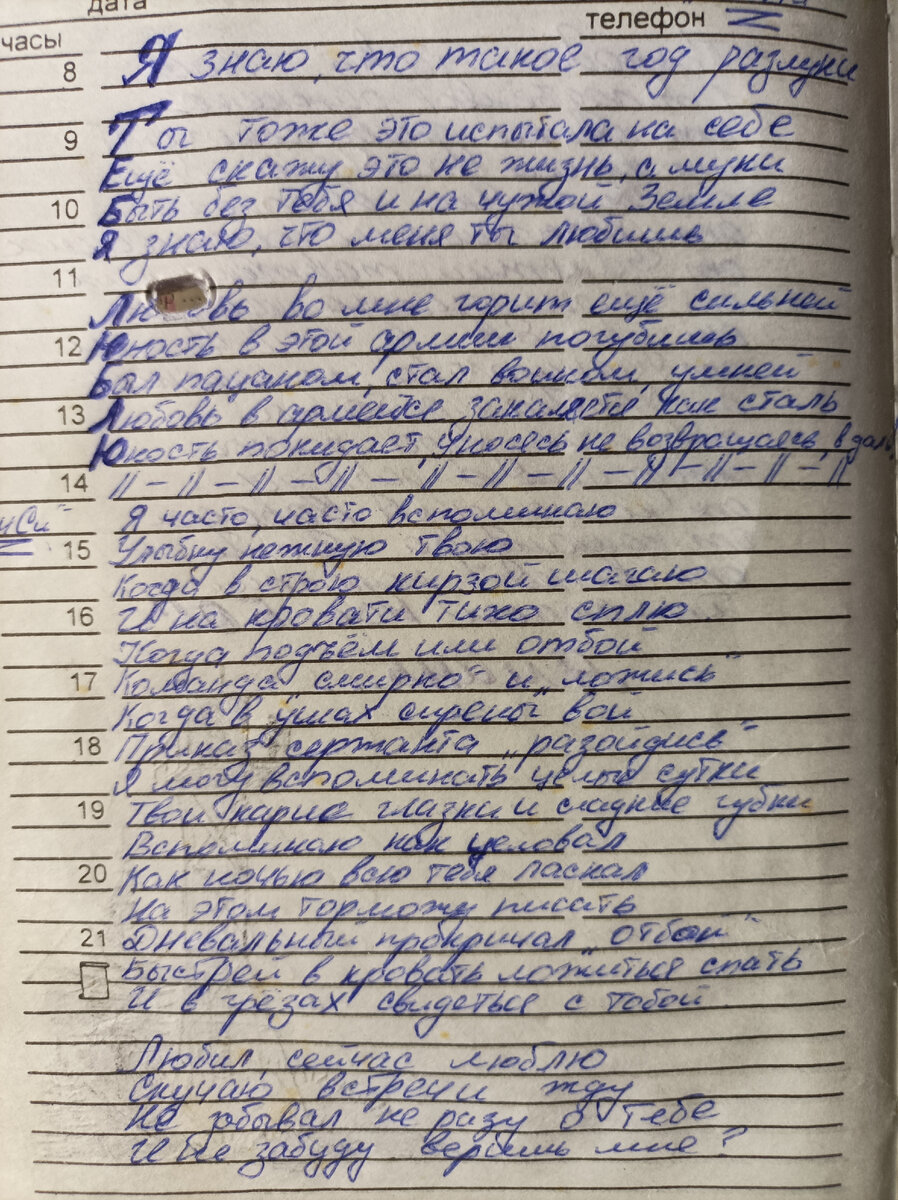 дата
часы
телефон
8 Я знаю, что такое год разлуки
9 Ты тоже это испытала на себе
Ещё скажу это не жизнь, а муки
10 Быть без Тебя и на чужой Земле
Я знаю, что меня ты любишь
11
Любовь во мне горит ещё сильней
12 Юность в этой армии погубишь
Был пацаном, стал воином, умней
13 Любовь в армейке закаляется как сталь
Юность покидает, уносясь, не возвращаясь, вдаль
14 // – // – // – // – // – // – // – // – // – // – //
Я часто, часто вспоминаю
15 Улыбку нежную твою
Когда в строю кирзой шагаю
16 И на кровати тихо сплю
Когда подъём или отбой
17 Команда „смирно" и „ложись"
Когда в ушах сирены вой
18 Приказ сержанта „разойдись"
Я могу вспоминать целые сутки
19 Твои карие глазки и сладкие губки
Вспоминаю как целовал
20 Как ночью всю тебя ласкал
На этом торможу писать
21 Дневальный прокричал „отбой"
Быстрей в кровать ложиться спать
И в грёзах свидеться с тобой
Любил, сейчас люблю
Скучаю встречи жду
Не збывал не разу о Тебе
И не забуду веришь мне?